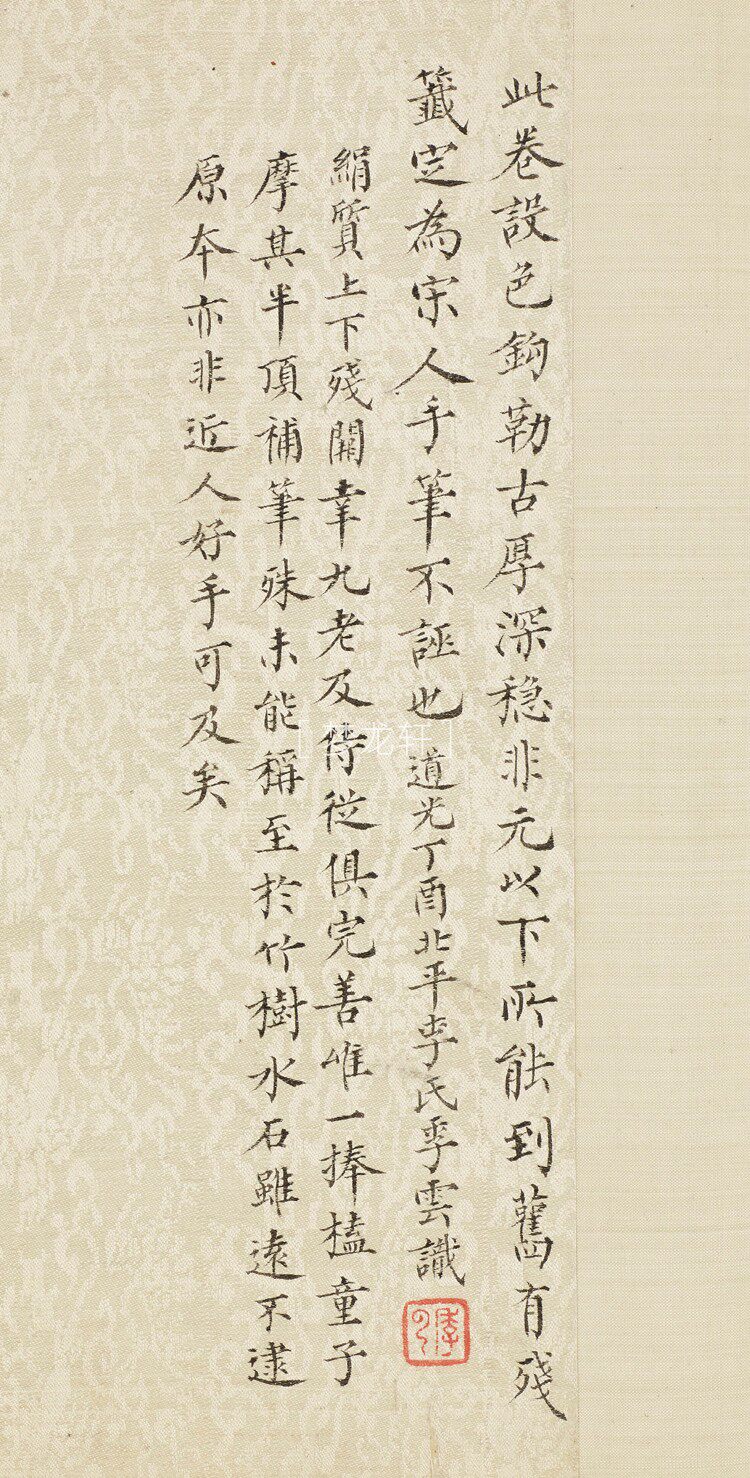 此卷設色鉤勒古厚深穩非元以下所能到舊有殘
籤定為宋人手筆不誣也道光丁酉北平李氏季雲識
季云
絹質上下殘闕幸九老及侍從俱完善唯一捧榼童子
摩其半頂補筆殊未能稱至於竹樹水石雖遠不逮
原本亦非近人好手可及矣
龙轩